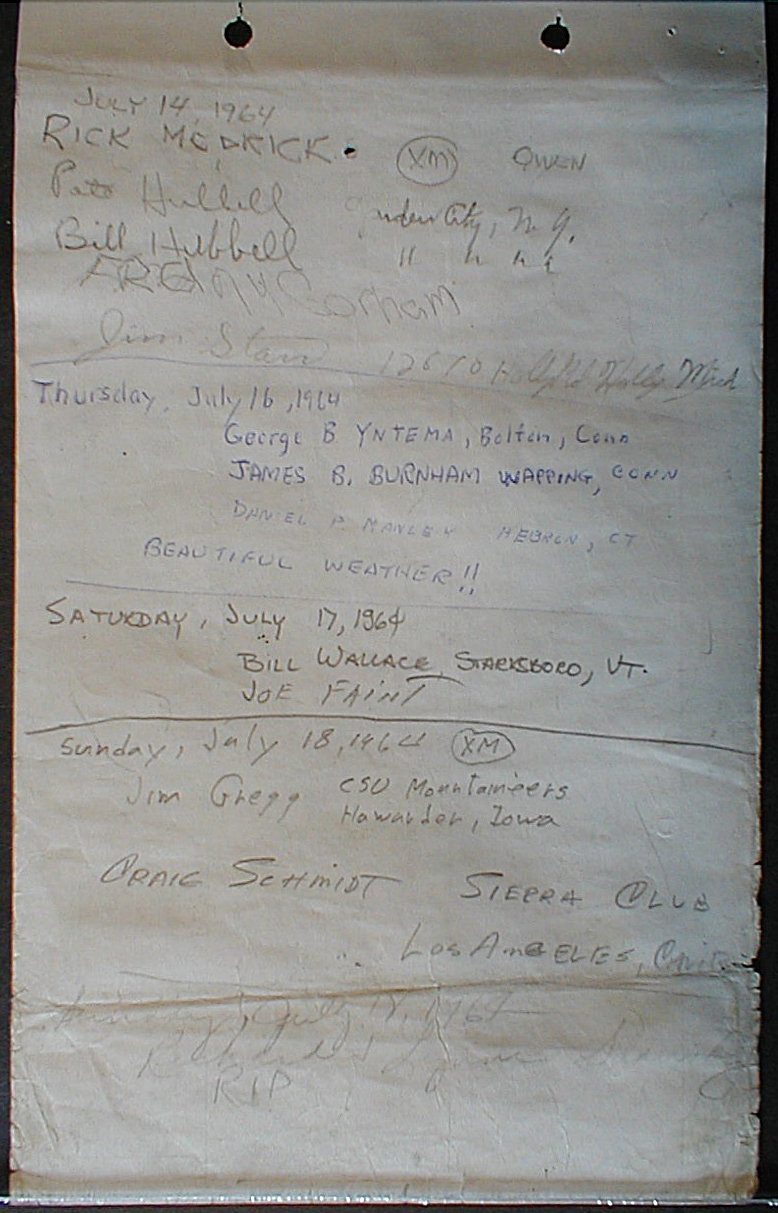 JULY 14, 1964
RICK MEDRICK XM OWEN
Hubbell City, N.Y.
Bill Hubbell " " "
Gorham
Jim Holly Mich
Thursday, July 16, 1964
George B YNTEMA, Bolton, Conn
JAMES B. BURNHAM WAPPING, CONN
DANIEL P. MANLEY HEBRON, CT
BEAUTIFUL WEATHER!!
SATURDAY, JULY 17, 1964
BILL WALLACE, STARKSBORO, VT.
JOE FAINT
Sunday, July 18, 1964 XM
Jim Gregg CSU Mountaineers
Hawarden, Iowa
CRAIG SCHMIDT SIERRA CLUB
LOS ANGELES,
July 18, 1964
RIP